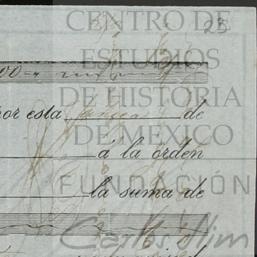 CENTRO DE
23
ESTUDIOS
00
DE HISTORIA
por esta única de
DE MÉXICO
á la orden
FUNDACIÓN
la suma de
Carlos Slim